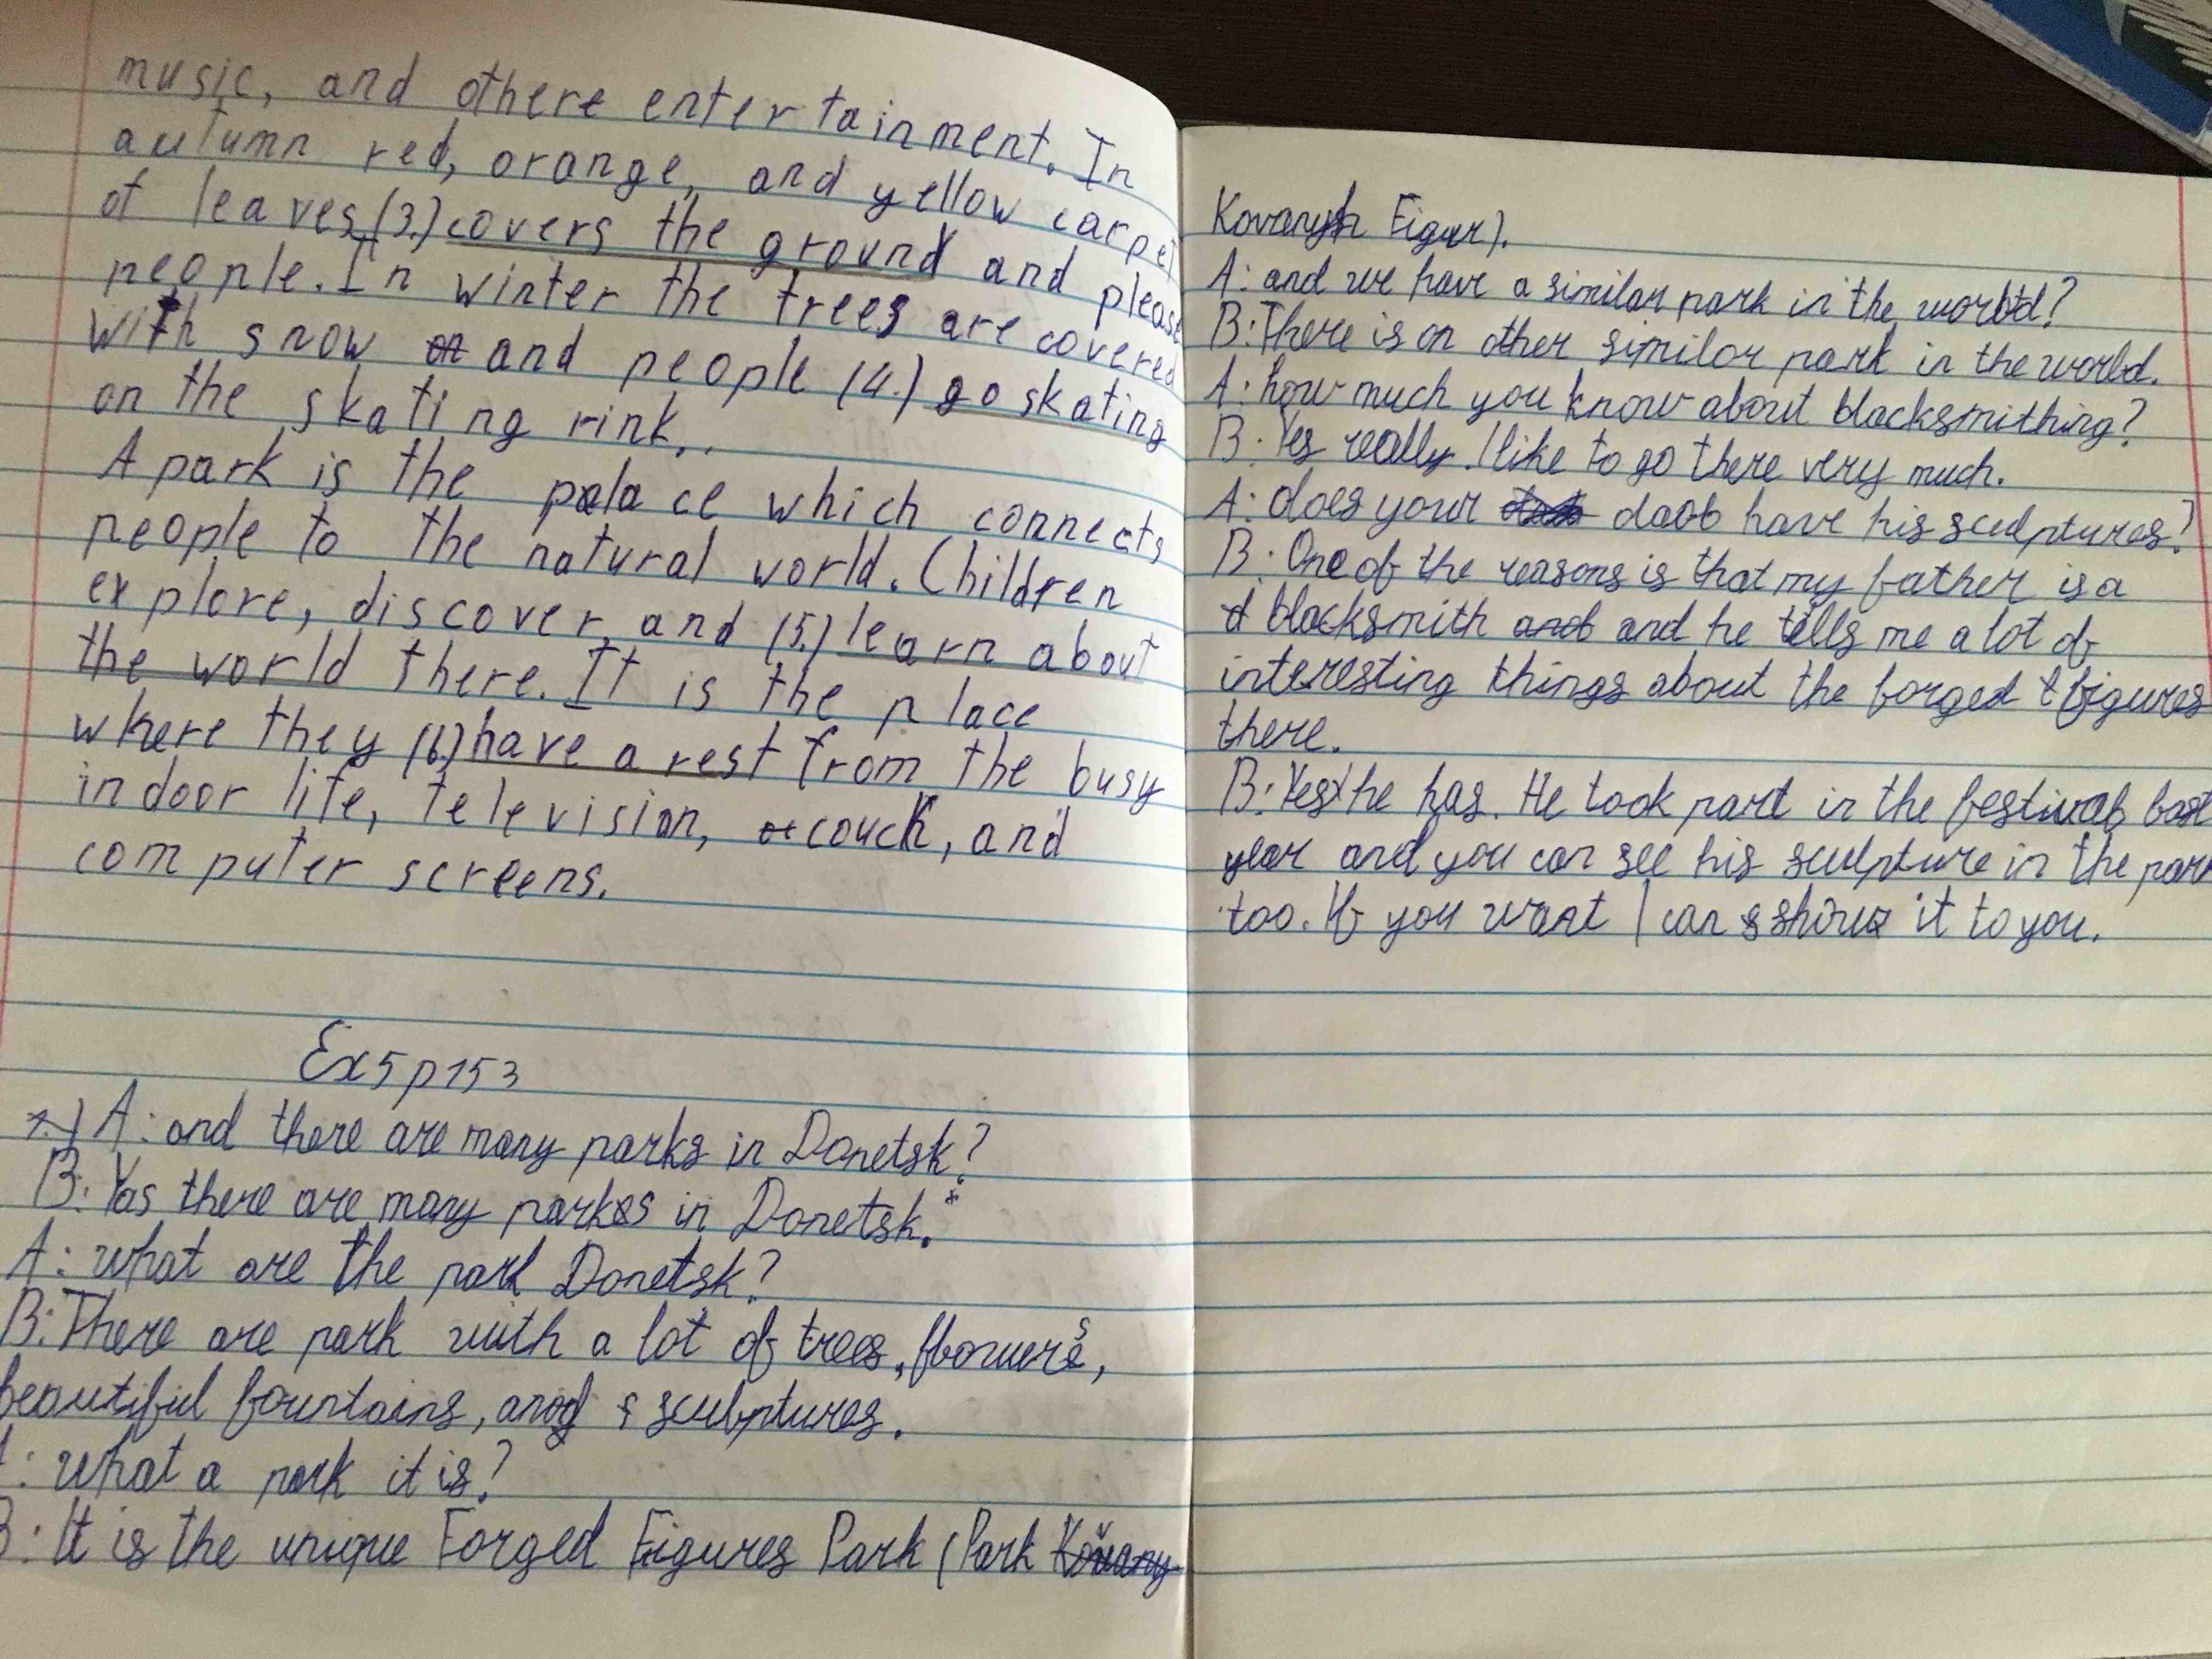 music, and othere entertainment. In
autumn red, orange, and yellow carpet
of leaves (3.) covers the ground and please
people. In winter the trees are covered
with snow and people (4.) go skating
on the skating rink..
A park is the palace which connects
people to the natural world. Children
explore, discover, and (5.) learn about
the world there. It is the place
where they (6.) have a rest from the busy
indoor life, television, couch, and
computer screens.
Ex5p153
1.) A: and there are many parks in Donetsk?
B: Yas there are many parks in Donetsk.
A: what are the park Donetsk?
B: There are park with a lot of trees, flowers,
beautiful fountains, and sculptures.
A: what a park it is?
B: It is the unique Forged Figures Park (Park Kovany-
Kovanyh Figur).
A: and we have a similar park in the world?
B: There is on other similar park in the world.
A: how much you know about blacksmithing?
B: Yes really. I like to go there very much.
A: does your dad have his sculptures?
B: One of the reasons is that my father is a
blacksmith and he tells me a lot of
interesting things about the forged figures
there.
B: Yes he has. He took part in the festival last
year and you can see his sculpture in the park
too. If you want I can show it to you.